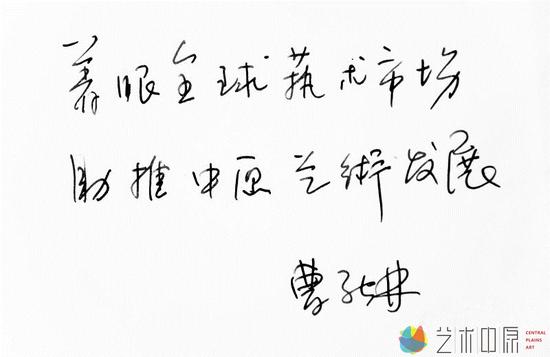 着眼全球藝术市场
助推中原艺術发展
曹
艺术中原
CENTRAL
PLAINS
ART